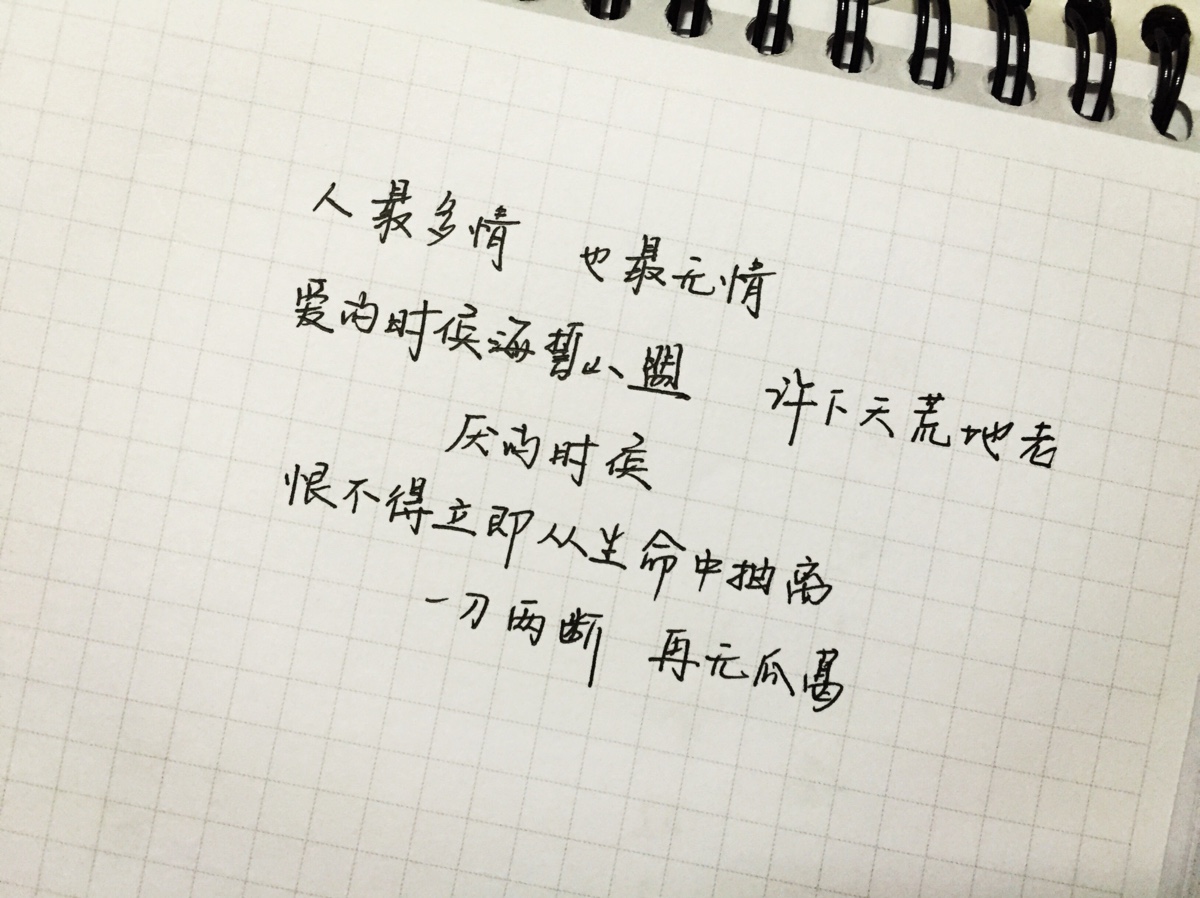 人最多情 也最无情
爱的时候海誓山盟 许下天荒地老
厌的时候
恨不得立即从生命中抽离
一刀两断 再无瓜葛